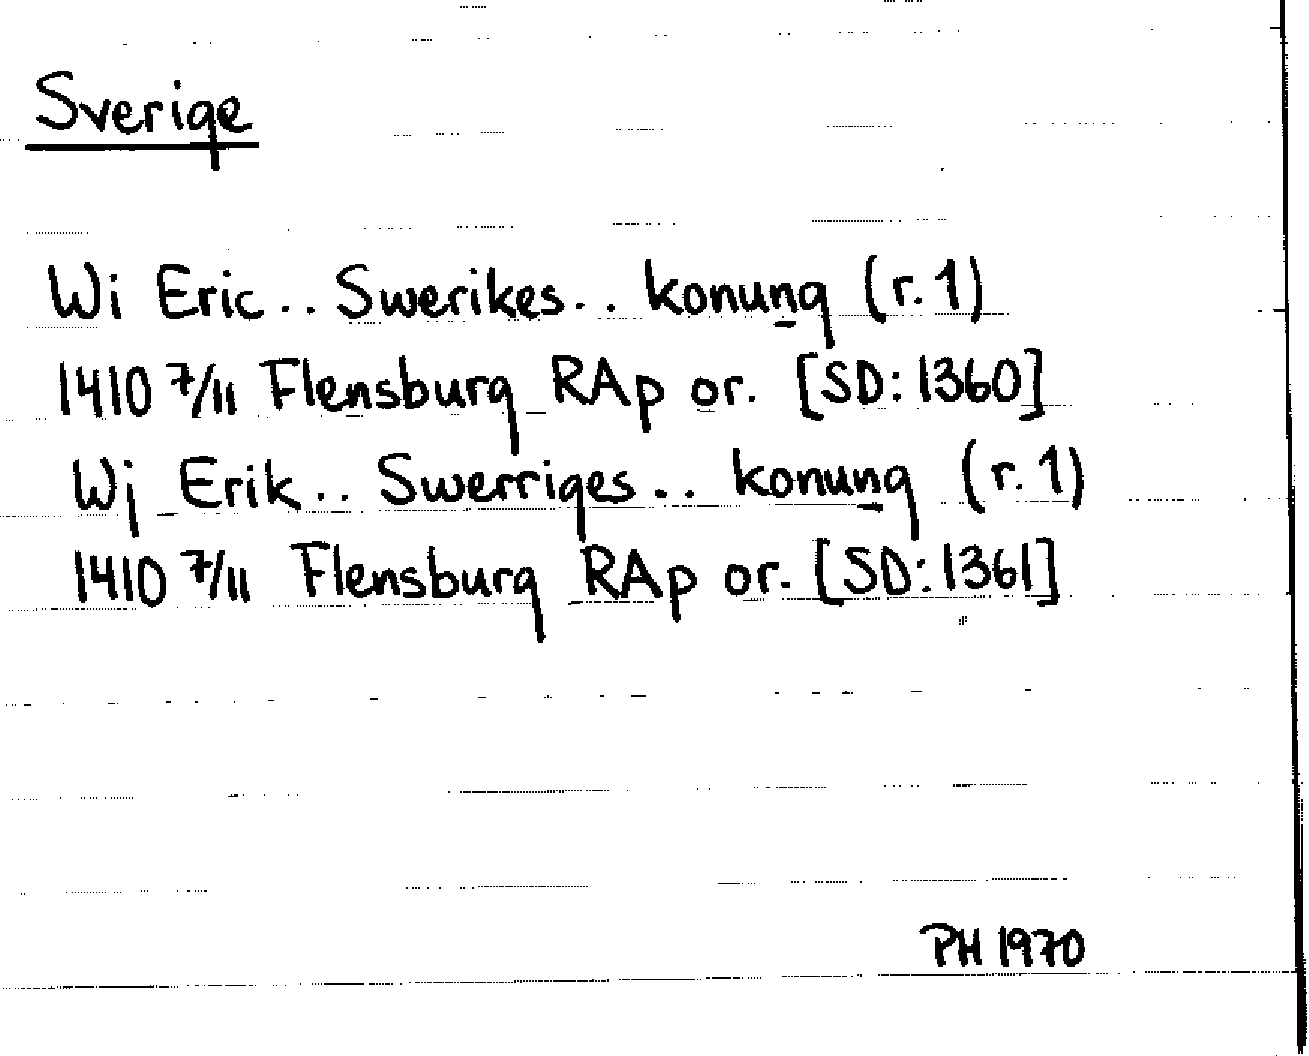 Sverige
Wi Eric.. Swerikes.. konung (r. 1)
1410 7/11 Flensburg RAp or. [SD: 1360]
Wj Erik.. Swerriges.. konung (r. 1)
1410 7/11 Flensburg RAp or. [SD: 1361]
PH 1970